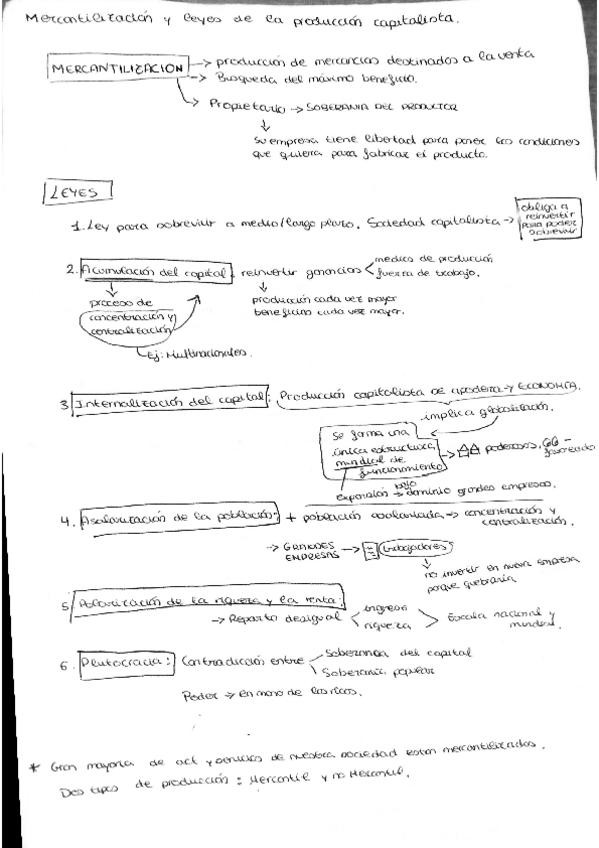 Mercantilización y leyes de la producción capitalista.
MERCANTILIZACION -> producción de mercancías destinados a la venta
-> Búsqueda del máximo beneficio.
-> Propietario -> SOBERANIA DEL PRODUCTOR
↓
su empresa tiene libertad para poner las condiciones
que quiera para fabricar el producto.
LEYES
1. Ley para sobrevivir a medio/largo plazo. Sociedad capitalista -> obliga a
reinvertir
para poder
sobrevivir
2. Acumulación del capital reinvertir ganancias < medios de producción
fuerza de trabajo.
↓
proceso de
concentración y
centralización
↓
producción cada vez mayor
beneficios cada vez mayor.
Ej: Multinacionales.
3 Internalización del capital: Producción capitalista se apodera -> ECONOMÍA.
implica globalización.
se forma una
única estructura
mundial de
funcionamiento
-> poderosos, GG -
favorecido
expansión -> bajo dominio grandes empresas.
4. Asalarización de la población: + población asalariada -> concentración y
centralización.
-> GRANDES
EMPRESAS -> trabajadores
↓
no invertir en nueva empresa
porque quebraría
5. Polarización de la riqueza y la renta.
-> Reparto desigual < ingreso
riqueza > Escala nacional y
mundial.
6. Plutocracia: Contradicción entre / Soberanía del capital
\ Soberanía popular
Poder -> en mano de los ricos.
* Gran mayoría de act y servicios de nuestra sociedad están mercantilizados.
Dos tipos de producción: Mercantil y no Mercantil.